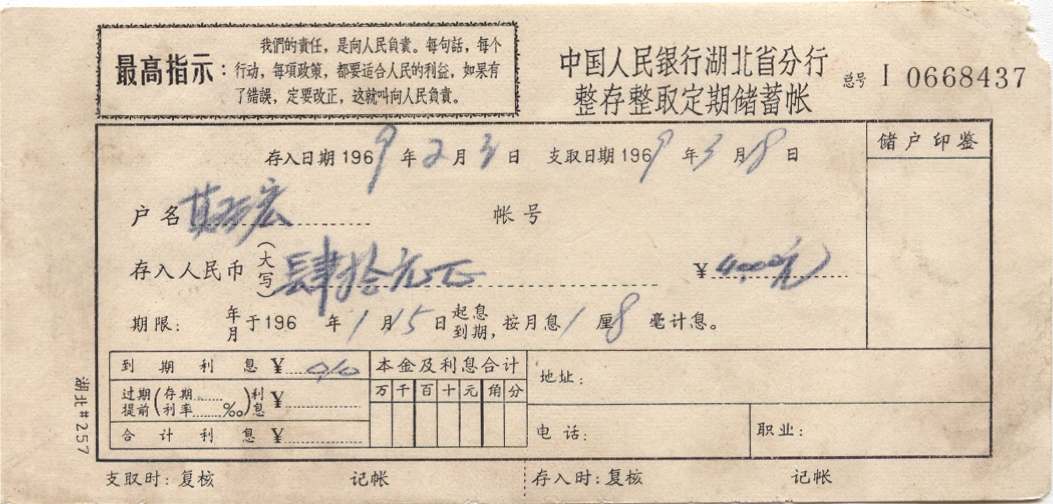 最高指示：
我們的責任，是向人民負責。每句話，每个
行动，每項政策，都要适合人民的利益，如果有
了錯誤，定要改正，这就叫向人民負責。
中国人民銀行湖北省分行
整存整取定期储蓄帐
总号 I 0668437
存入日期 1969 年 2 月 3 日 支取日期 1969 年 3 月 8 日
储户印鉴
户名 宏 帐号
存入人民币（大写）肆拾元正 ¥ 4000元
期限： 年月于196 年 1 月 15 日起息到期，按月息 1 厘 8 毫計息。
到期利息 ¥
本金及利息合计
万 千 百 十 元 角 分
过期提前（存期 利率 ‰）利息 ¥
合计利息 ¥
地址：
电话： 职业：
湖北#257
支取时：复核 记帐 存入时：复核 记帐